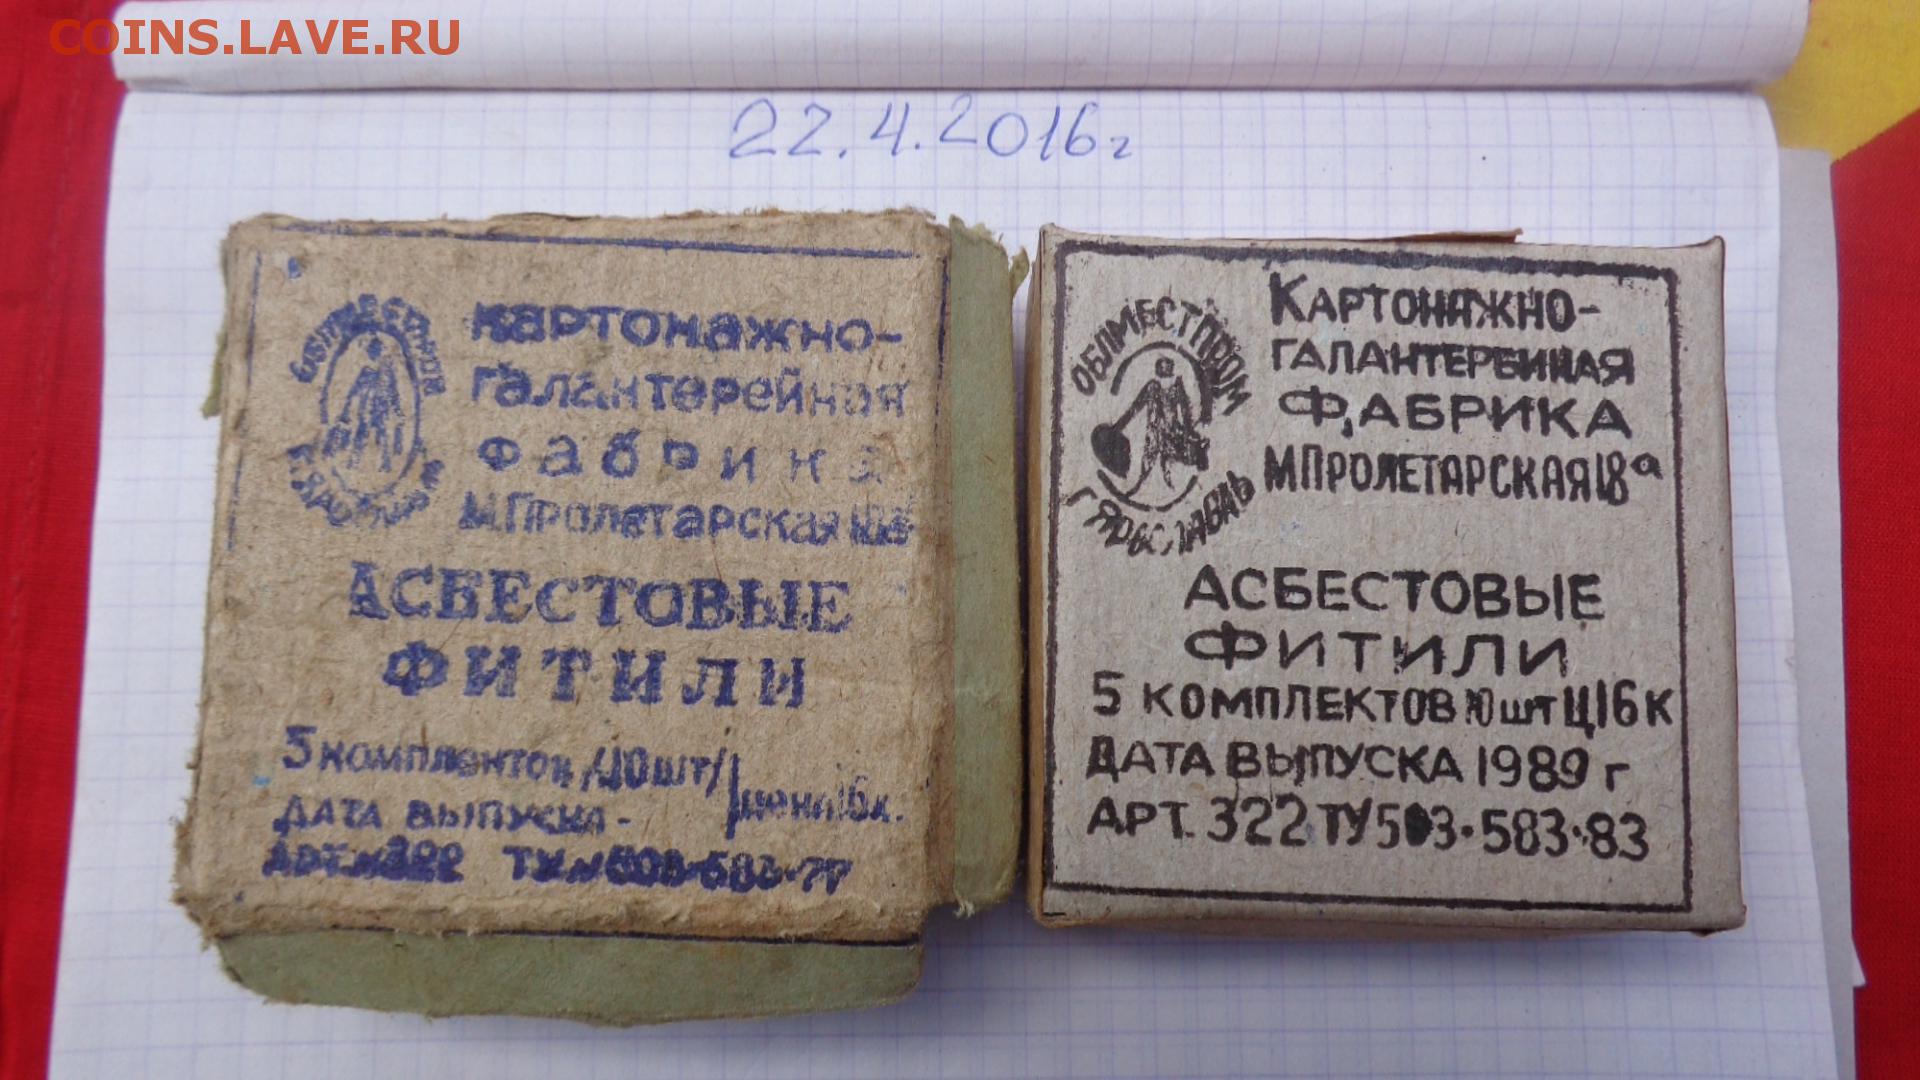 COINS.LAVE.RU
22.4.2016г
КАРТОНАЖНО-
ГАЛАНТЕРЕЙНАЯ
ФАБРИКА
М.ПРОЛЕТАРСКАЯ
АСБЕСТОВЫЕ
ФИТИЛИ
5 КОМПЛЕКТОВ /10шт/
ЦЕНА 16к.
ДАТА ВЫПУСКА-
АРТ.№322 ТУ№503-583-77
ОБЛМЕСТПРОМ
Г.ЯРОСЛАВЛЬ
КАРТОНАЖНО-
ГАЛАНТЕРЕЙНАЯ
ФАБРИКА
МПРОЛЕТАРСКАЯ18а
АСБЕСТОВЫЕ
ФИТИЛИ
5 КОМПЛЕКТОВ 10шт Ц16к
ДАТА ВЫПУСКА 1989г
АРТ. 322 ТУ503.583.83